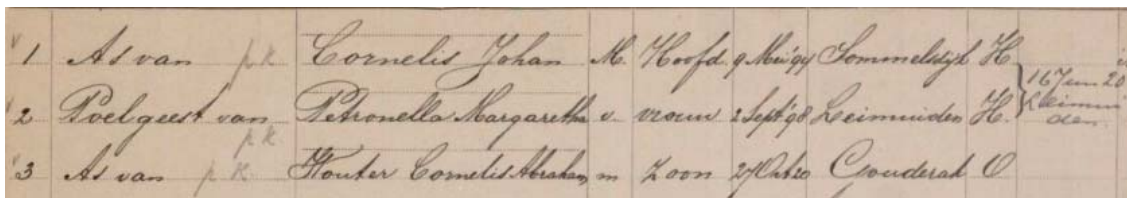 v 1 As van p.k. Cornelis Johan M. Hoofd 9 Mei '94 Sommelsdijk H.
16 Jun 20
v 2 Poelgeest van p.k. Petronella Margaretha v. vrouw 2 Sept '98 Leimuiden H. Leimui
den.
v 3 As van p.k. Wouter Cornelis Abraham m Zoon 27 Oct 20 Gouderak O